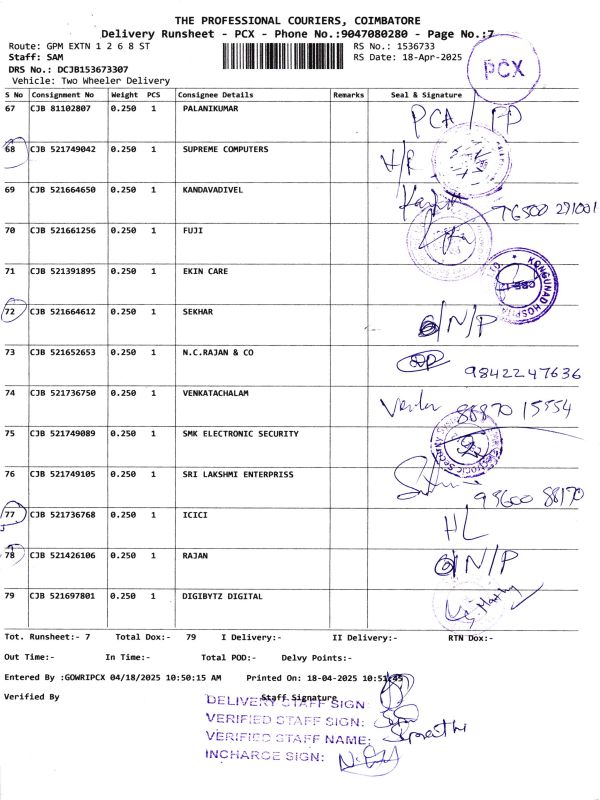 THE PROFESSIONAL COURIERS, COIMBATORE
Delivery Runsheet - PCX - Phone No.:9047080280 - Page No.:7
Route: GPM EXTN 1 2 6 8 ST RS No.: 1536733
Staff: SAM RS Date: 18-Apr-2025
DRS No.: DCJB153673307
Vehicle: Two Wheeler Delivery
PCX
S No Consignment No Weight PCS Consignee Details Remarks Seal & Signature
67 CJB 81102807 0.250 1 PALANIKUMAR PCA / FP
68 CJB 521749042 0.250 1 SUPREME COMPUTERS H/R
69 CJB 521664650 0.250 1 KANDAVADIVEL 76500 291001
70 CJB 521661256 0.250 1 FUJI
71 CJB 521391895 0.250 1 EKIN CARE KONGUNAD HOSPITAL
72 CJB 521664612 0.250 1 SEKHAR O/N/P
73 CJB 521652653 0.250 1 N.C.RAJAN & CO 9842247636
74 CJB 521736750 0.250 1 VENKATACHALAM 88870 15554
75 CJB 521749089 0.250 1 SMK ELECTRONIC SECURITY
76 CJB 521749105 0.250 1 SRI LAKSHMI ENTERPRISS 93600 88170
77 CJB 521736768 0.250 1 ICICI HL
78 CJB 521426106 0.250 1 RAJAN O/N/P
79 CJB 521697801 0.250 1 DIGIBYTZ DIGITAL
Tot. Runsheet:- 7 Total Dox:- 79 I Delivery:- II Delivery:- RTN Dox:-
Out Time:- In Time:- Total POD:- Delvy Points:-
Entered By :GOWRIPCX 04/18/2025 10:50:15 AM Printed On: 18-04-2025 10:51:45
Verified By Staff Signature
DELIVERY STAFF SIGN
VERIFIED STAFF SIGN:
VERIFIED STAFF NAME:
INCHARGE SIGN: